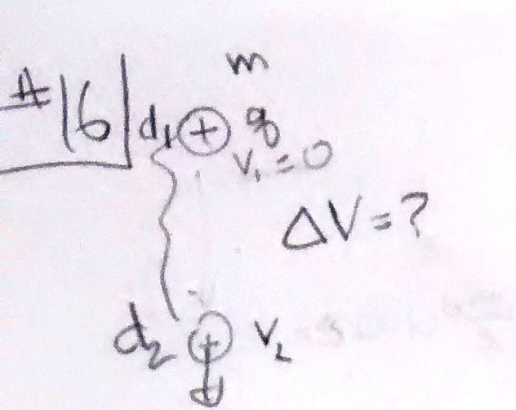 m
#16 d₁ + q
v₁ = 0
ΔV = ?
d₂ + v₂